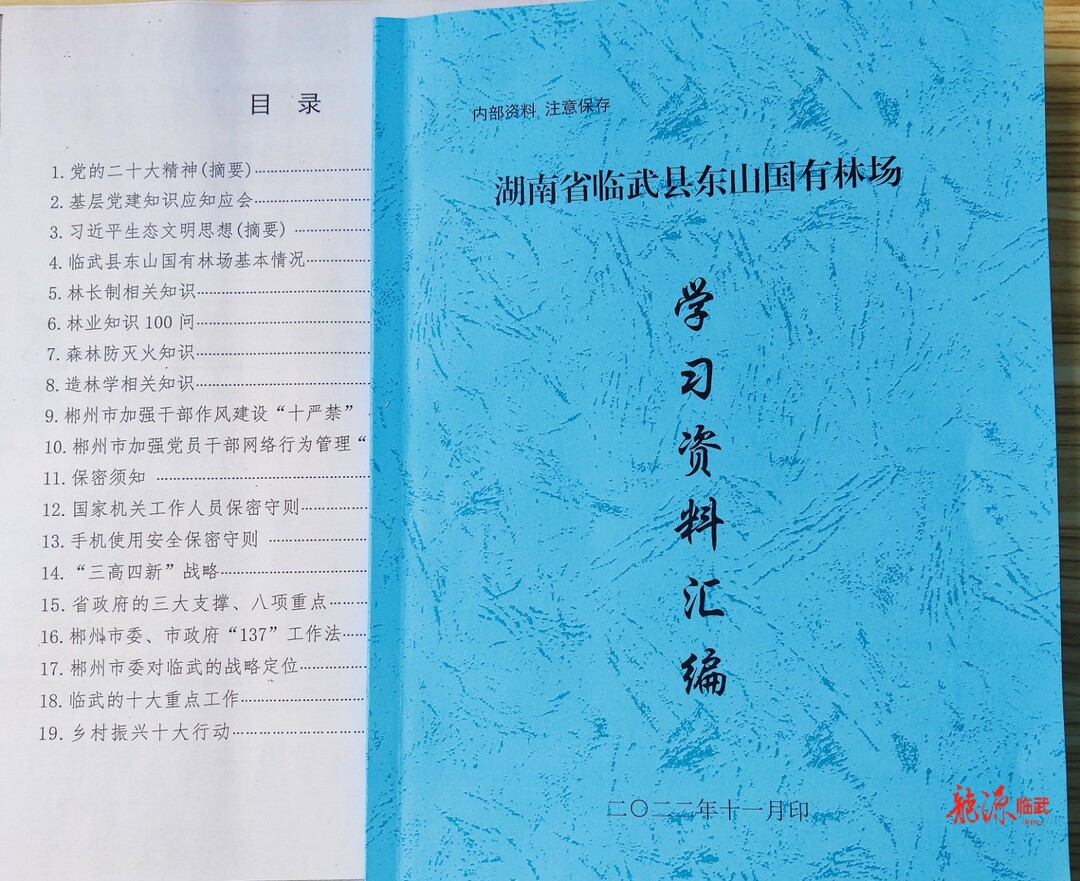 目 录
1. 党的二十大精神(摘要)
2. 基层党建知识应知应会
3. 习近平生态文明思想(摘要)
4. 临武县东山国有林场基本情况
5. 林长制相关知识
6. 林业知识 100 问
7. 森林防灭火知识
8. 造林学相关知识
9. 郴州市加强干部作风建设“十严禁”
10. 郴州市加强党员干部网络行为管理“
11. 保密须知
12. 国家机关工作人员保密守则
13. 手机使用安全保密守则
14. “三高四新”战略
15. 省政府的三大支撑、八项重点
16. 郴州市委、市政府“137”工作法
17. 郴州市委对临武的战略定位
18. 临武的十大重点工作
19. 乡村振兴十大行动
内部资料 注意保存
湖南省临武县东山国有林场
学习资料汇编
二〇二二年十一月印
龙源临武